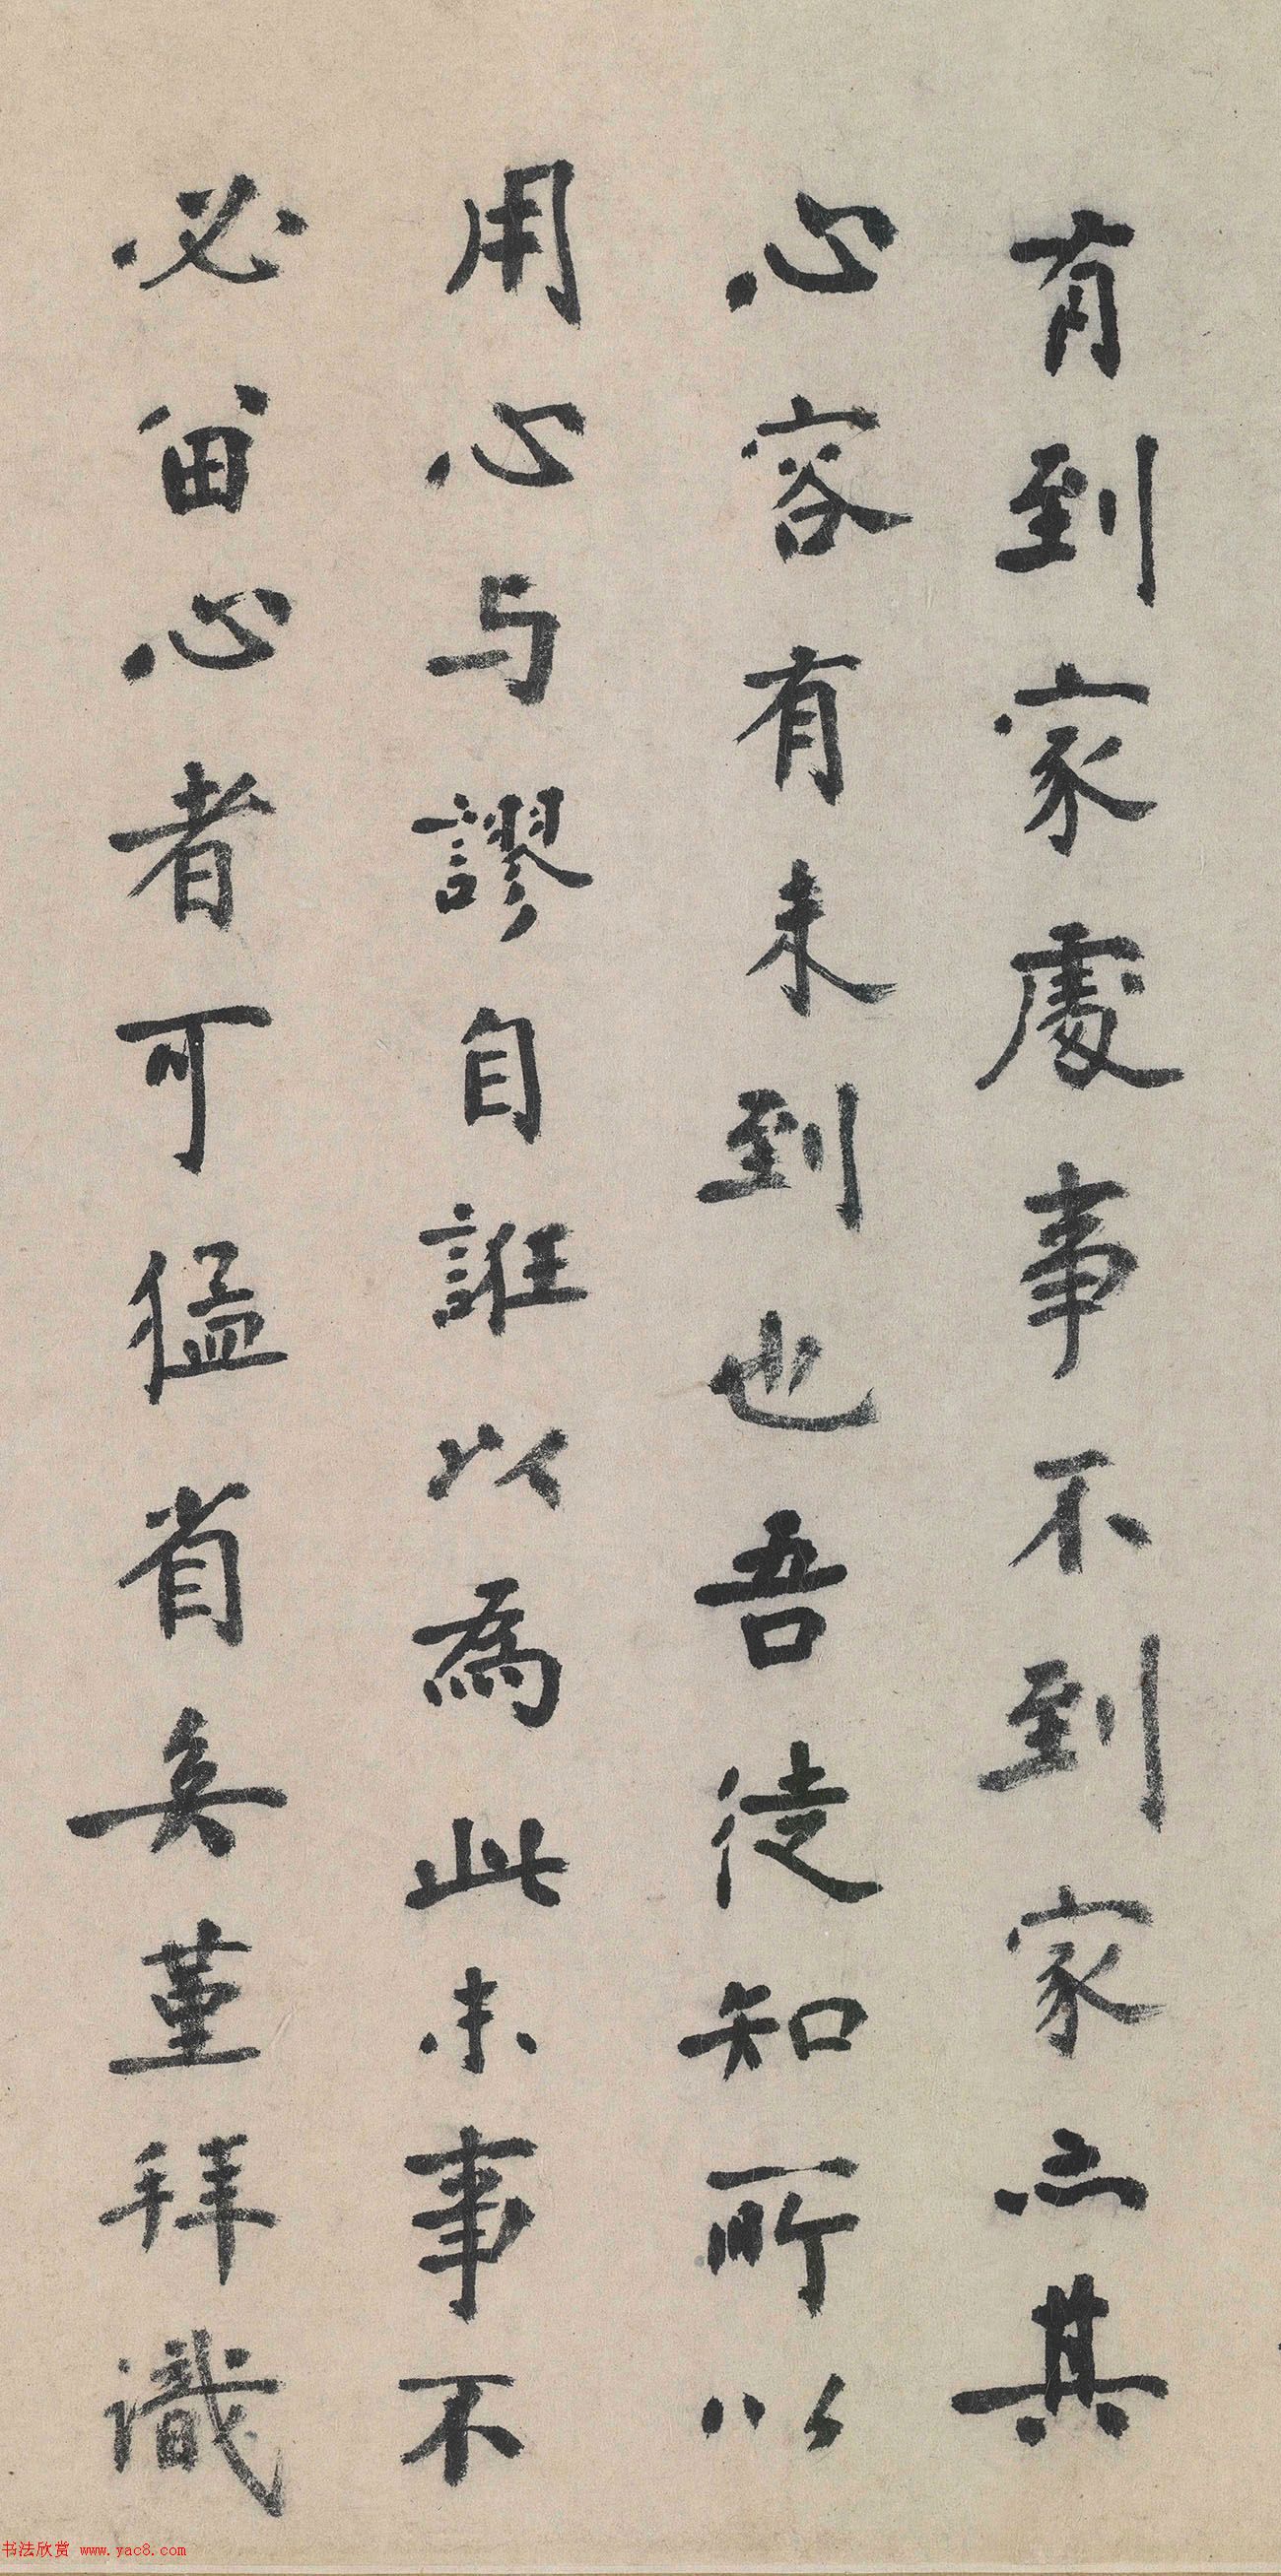 有到家處事不到家亦其
心容有未到也吾徒知所以
用心与謬自誑以為此末事不
必留心者可猛省矣堇拜識
书法欣赏 www.yac8.com